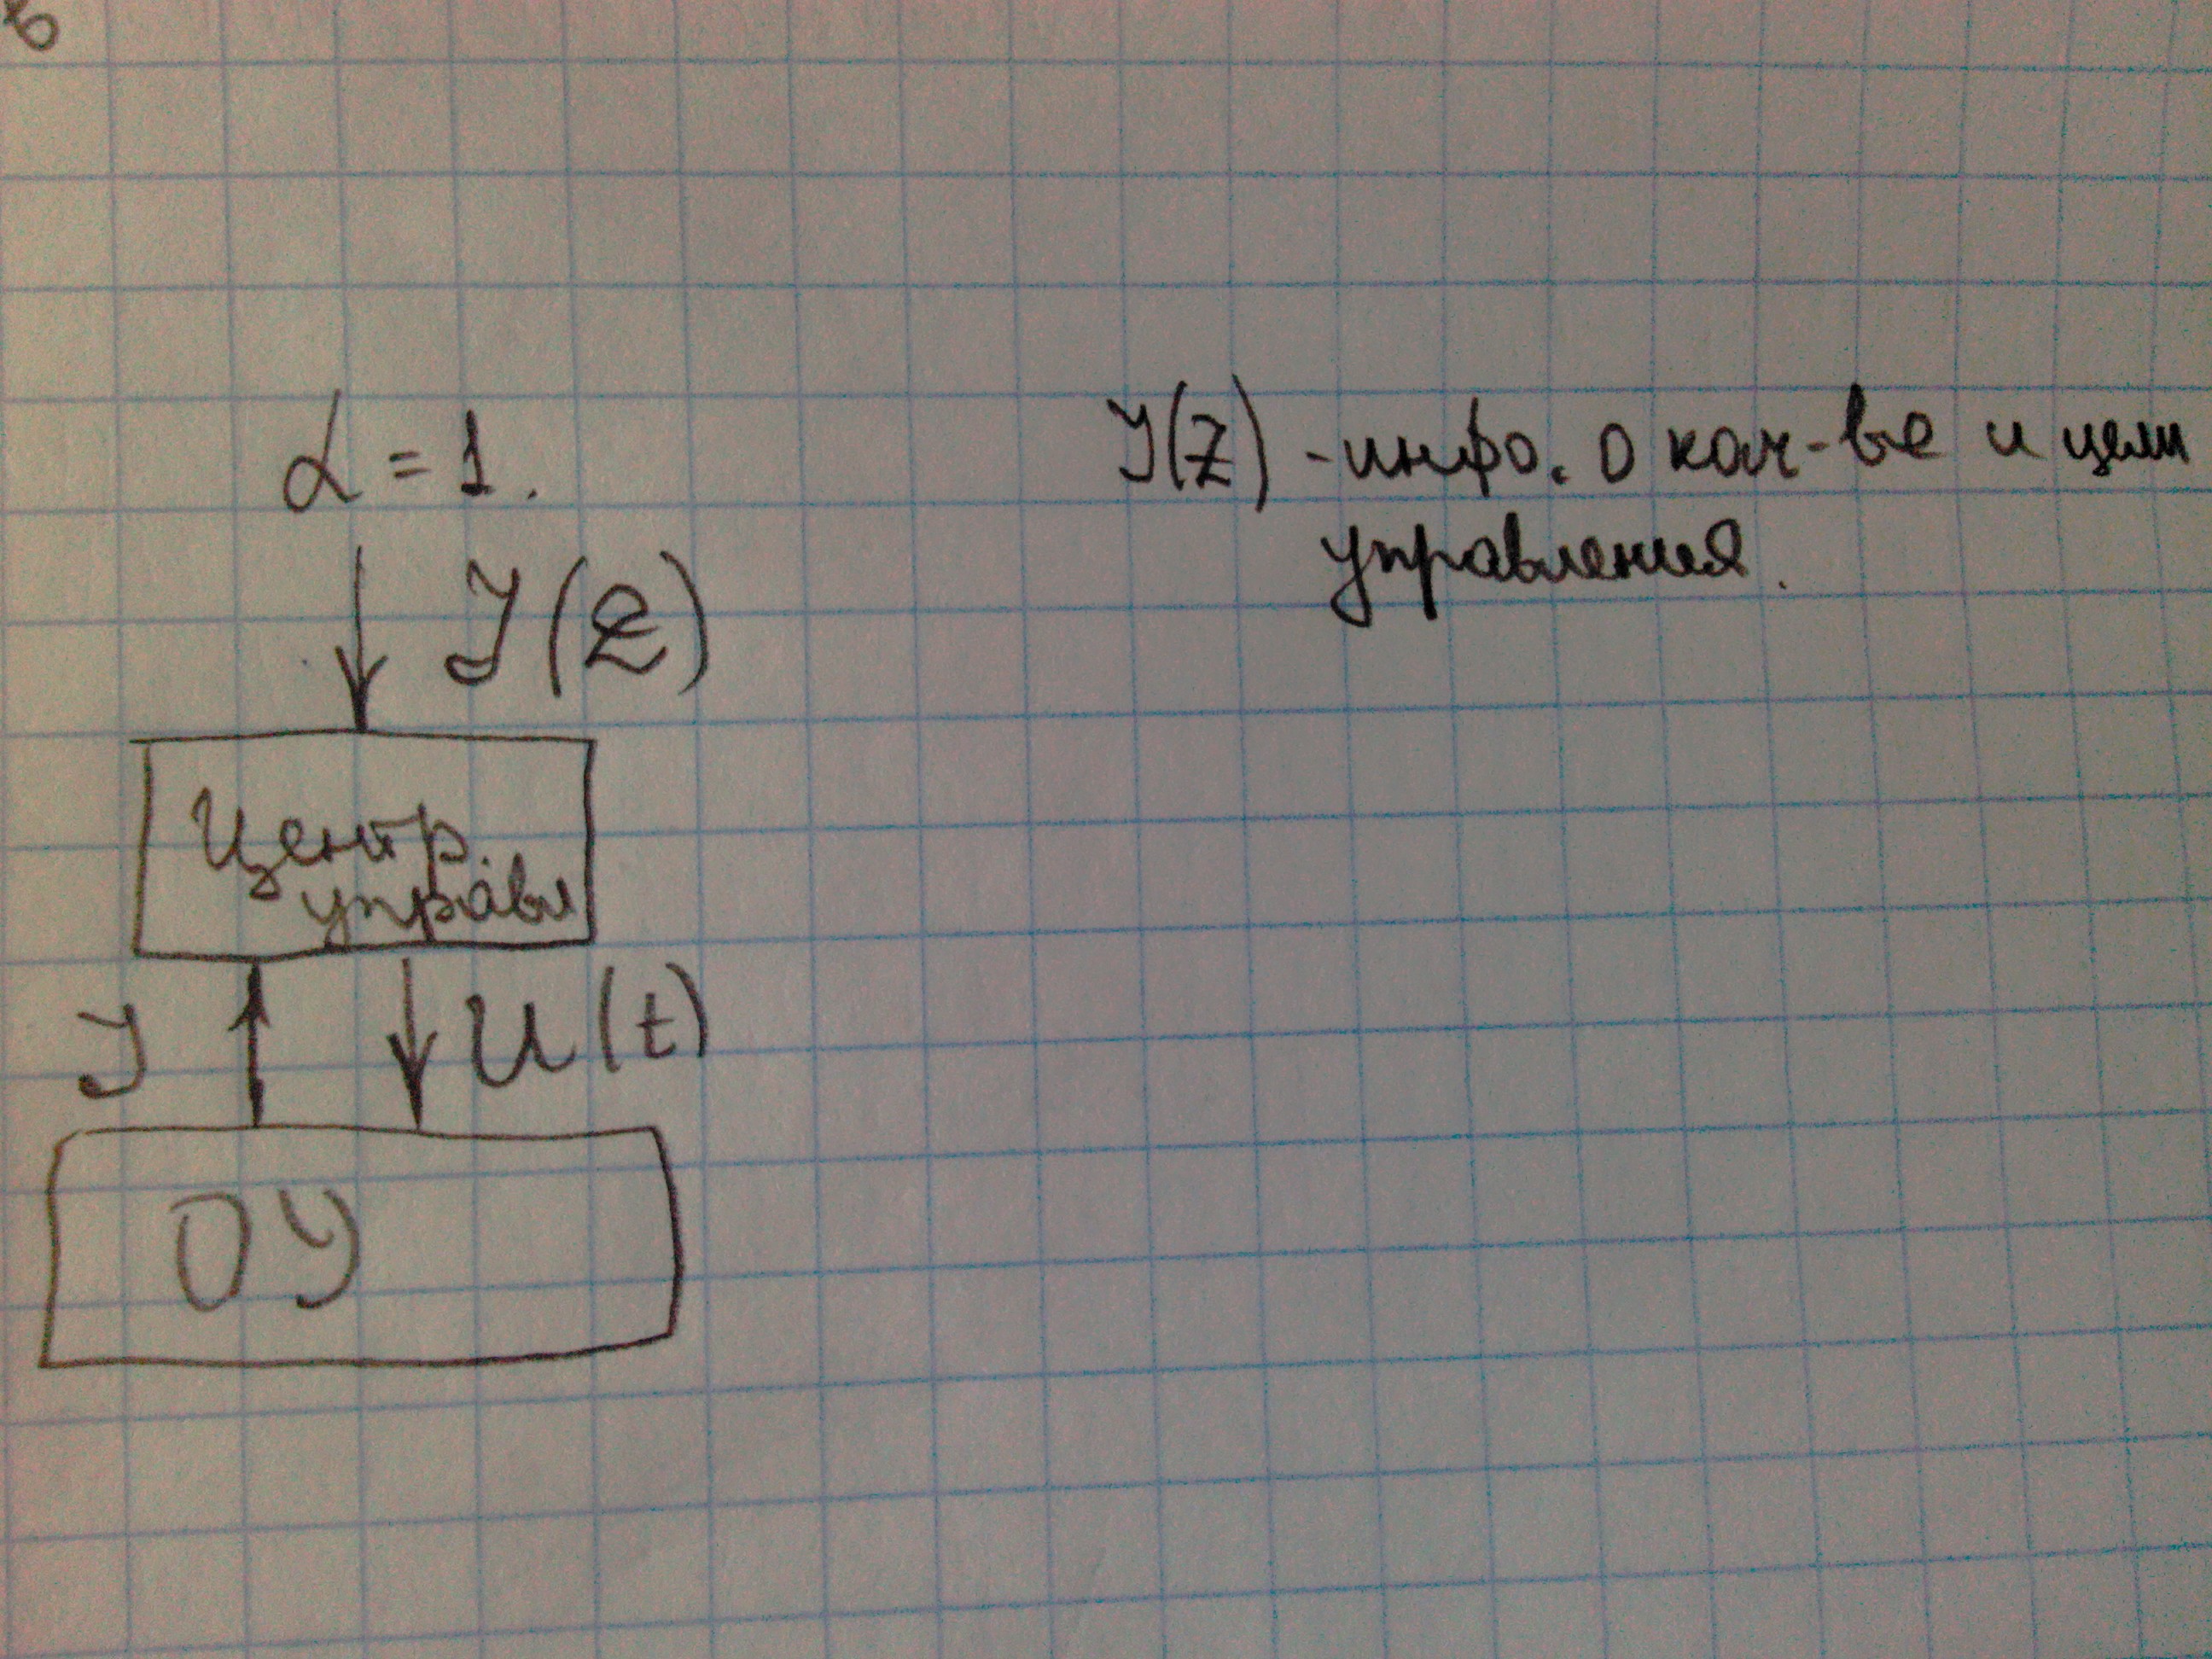 в
α = 1.
J(Z) - инфо. о кач-ве и цели
управления.
J(Z)
Центр.
управл
J
U(t)
ОУ